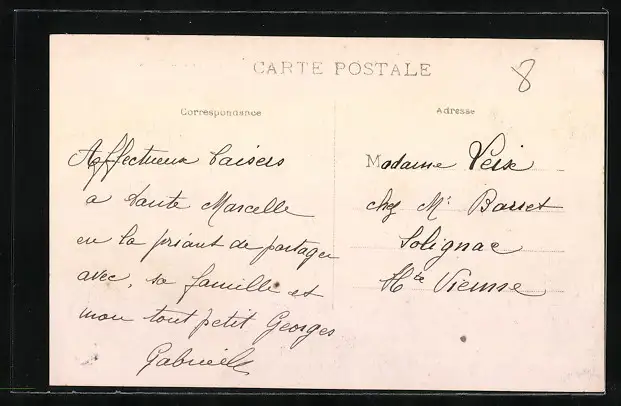 CARTE POSTALE
8
Correspondance
Affectueux baisers
a tante Marcelle
en la priant de partager
avec, sa famille et
mon tout petit Georges
Gabrielle
Adresse
Madame Veix
chez Mr Barret
Solignac
Hte Vienne